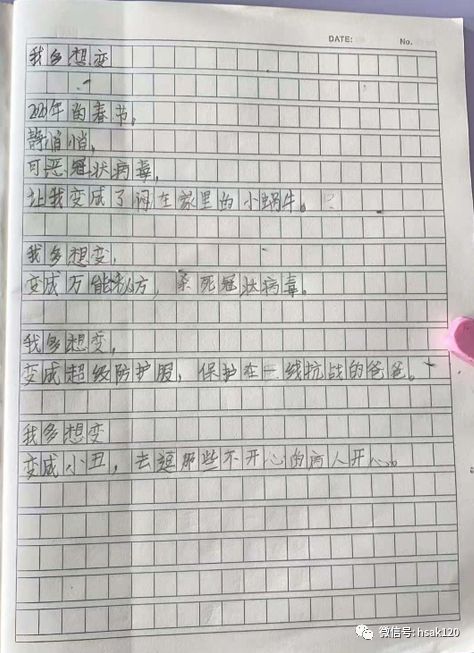 DATE:
No.
我多想变
2020年的春节，
静悄悄，
可恶冠状病毒，
让我变成了闷在家里的小蜗牛。
我多想变，
变成万能秘方，杀死冠状病毒。
我多想变，
变成超级防护服，保护在一线抗战的爸爸。
我多想变
变成小丑，去逗那些不开心的病人开心。
微信号: hsak120